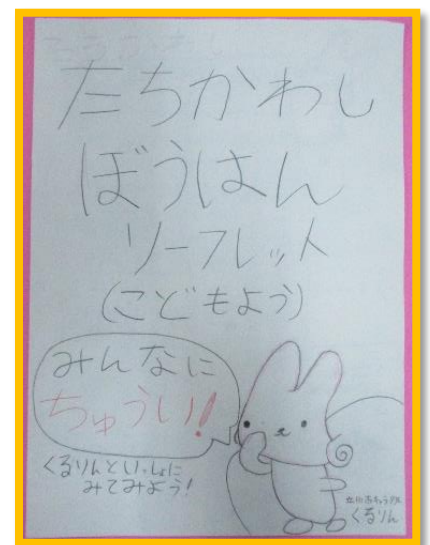 たちかわし
ぼうはん
リーフレット
(こどもよう)
みんなに
ちゅうい!
くるりんといっしょに
みてみよう!
くるりん